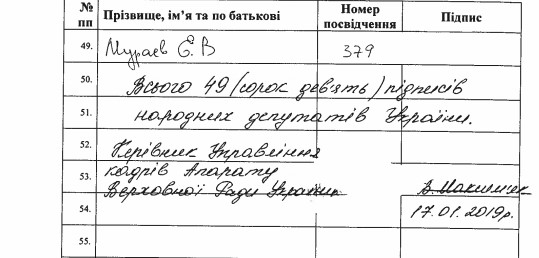 № пп Прізвище, ім'я та по батькові Номер посвідчення Підпис
49. Мураев Є. В 379
50. Всього 49 (сорок дев'ять) підписів
51. народних депутатів України.
52. Керівник Управління
кадрів Апарату
53. Верховної Ради України
54. 17.01.2019р.
55.